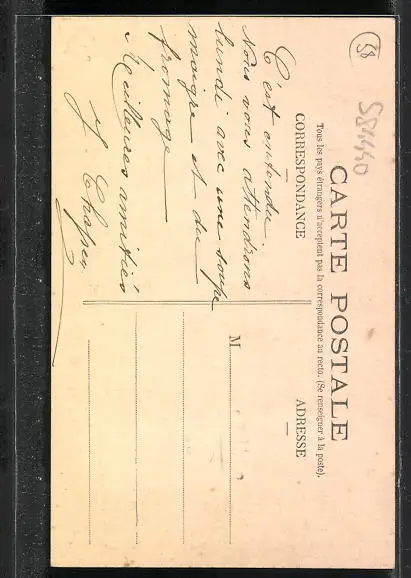 58
584440
CARTE POSTALE
Tous les pays étrangers n'acceptent pas la correspondance au recto. (Se renseigner à la poste).
CORRESPONDANCE
ADRESSE
C'est entendu.
Nous vous attendrons
lundi avec une soupe
maigre et du
fromage
Meilleures amitiés
M